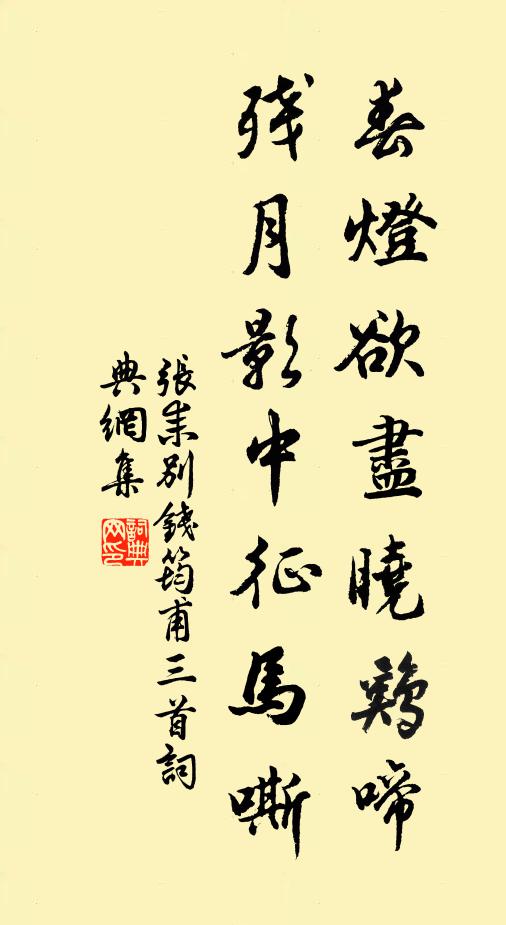 春燈欲盡曉鷄啼
残月影中征馬嘶
張耒別錢筠甫三首詞
典網集
詞典网印